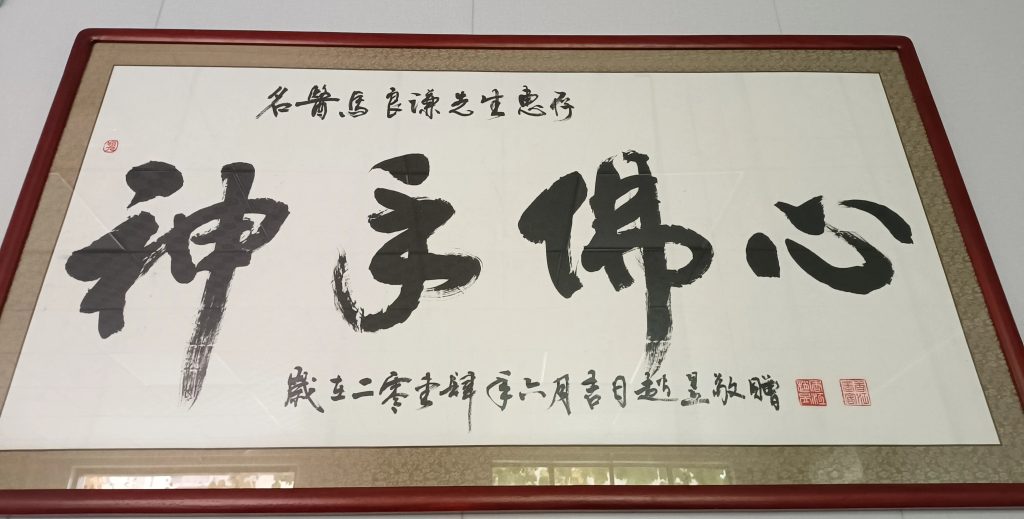 名醫馬良谦先生惠存
神手佛心
歲在二零壹肆年六月吉日趙昱敬贈